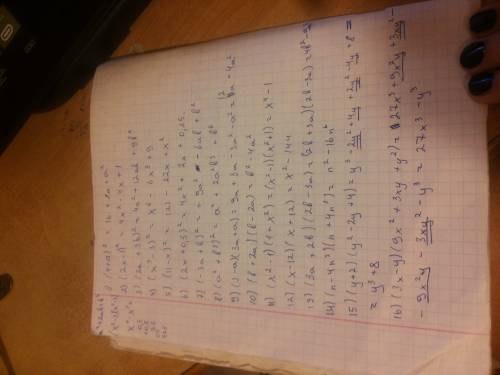 2) (2x-1)² = 4x² - 4x + 1
3) (2a + 3b)² = 4a² + 12ab + 9b²
4) (x³ - 3)² = x⁶ - 6x³ + 9
5) (11 - x)² = 121 - 22x + x²
6) (2x + 0,5)² = 4x² + 2x + 0,25.
7) (-3a + b)² = 9a² - 6ab + b²
10) (b + 2a)(b - 2a) = b² - 4a²
11) (x² - 1)(1 + x²) = (x² - 1)(x² + 1) = x⁴ - 1
12) (x - 12)(x + 12) = x² - 144
13) (3a + 2b)(2b - 3a) = (2b + 3a)(2b - 3a) = 4b² - 9a
14) (n - 4n³)(n + 4n³) = n² - 16n⁶
15) (y + 2)(y² - 2y + 4) = y³ - 2y² + 4y + 2y² - 4y + 8 =
= y³ + 8
16) (3x - y)(9x² + 3xy + y²) = 27x³ + 9x²y + 3xy² -
- 9x²y - 3xy² - y³ = 27x³ - y³